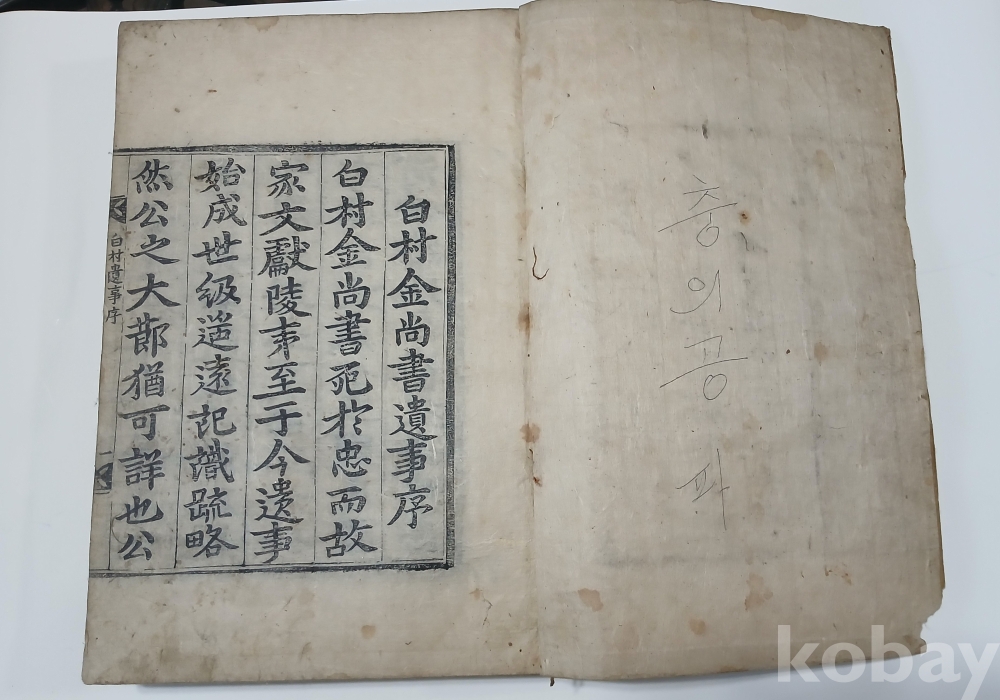 충의공파
白村金尚書遺事序
白村金尚書死於忠而故
家文獻陵夷至于今遺事
始成世級遠記識疏略
然公之大節猶可詳也公
白村遺事序
一
kobay